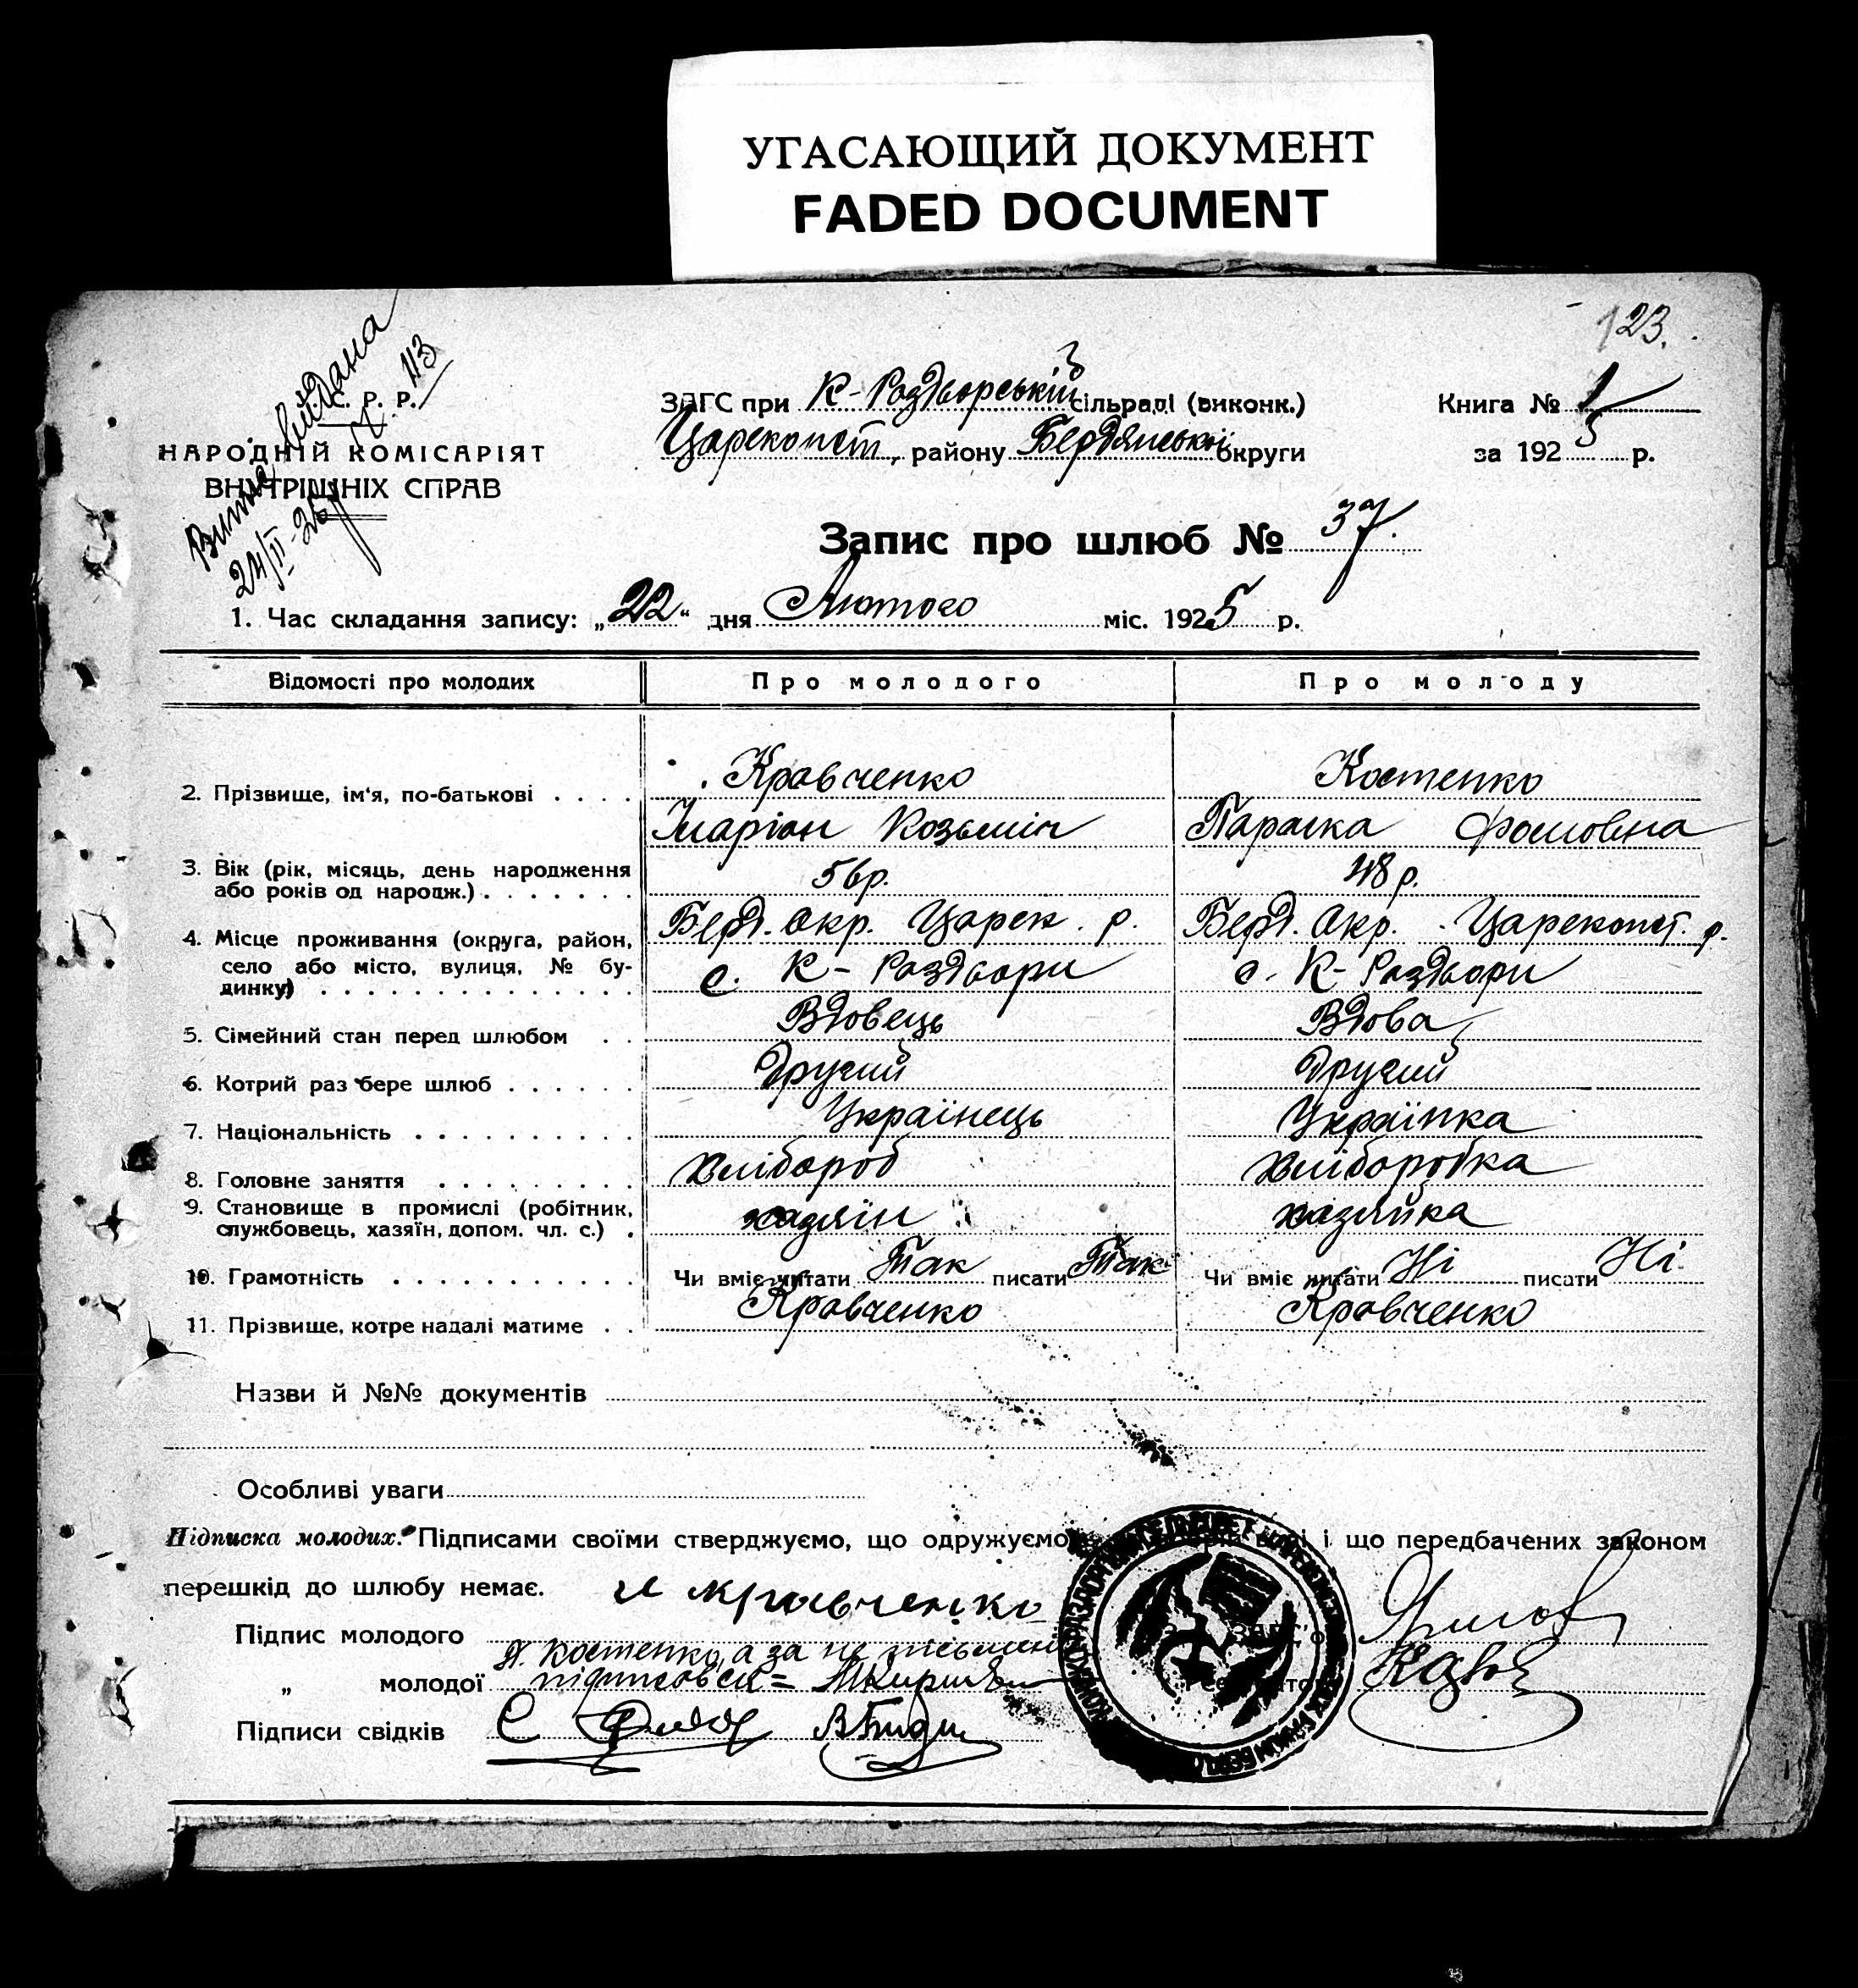 УГАСАЮЩИЙ ДОКУМЕНТ
FADED DOCUMENT
123.
Витяг видана
24/II-25 113
С. Р. Р.
НАРОДНІЙ КОМІСАРІЯТ
ВНУТРІШНІХ СПРАВ
ЗАГС при К-Роздорській сільраді (виконк.)
Царекопст, району Бердянської округи
Книга № 1
за 1925 р.
Запис про шлюб № 37.
1. Час складання запису: „22“ дня Лютого міс. 1925 р.
Відомості про молодих Про молодого Про молоду
2. Прізвище, ім'я, по-батькові . . . . Кравченко Костенко
Іларіон Козьміч Параска Фомовна
3. Вік (рік, місяць, день народження
або років од народж.) . . . . . . . 56р. 48р.
4. Місце проживання (округа, район, Берд. Окр. Царек. р. Берд. Окр. Царекопст. р.
село або місто, вулиця, № бу-
динку) . . . . . . . . . . . . . . с. К-Роздори с. К-Роздори
5. Сімейний стан перед шлюбом . . Вдовець Вдова
6. Котрий раз бере шлюб . . . . . . Другий Другий
7. Національність . . . . . . . . . . Українець Українка
8. Головне заняття . . . . . . . . . Хлібороб Хліборобка
9. Становище в промислі (робітник,
службовець, хазяїн, допом. чл. с.) . хазяін хазяйка
10. Грамотність . . . . . . . . . . . Чи вміє читати Так писати Так Чи вміє читати Ні писати Ні
11. Прізвище, котре надалі матиме . . Кравченко Кравченко
Назви й №№ документів
Особливі уваги
Підписка молодих. Підписами своїми стверджуємо, що одружуємо і що передбачених законом
перешкід до шлюбу немає.
Підпис молодого И Кравченко
П. Костенко, а за не письмен
„ молодої підписався =
Підписи свідків С